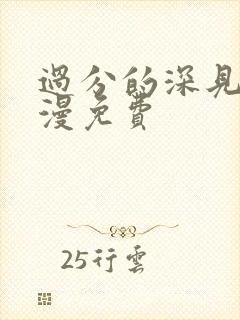 過分的深見
漫免費
25行雲